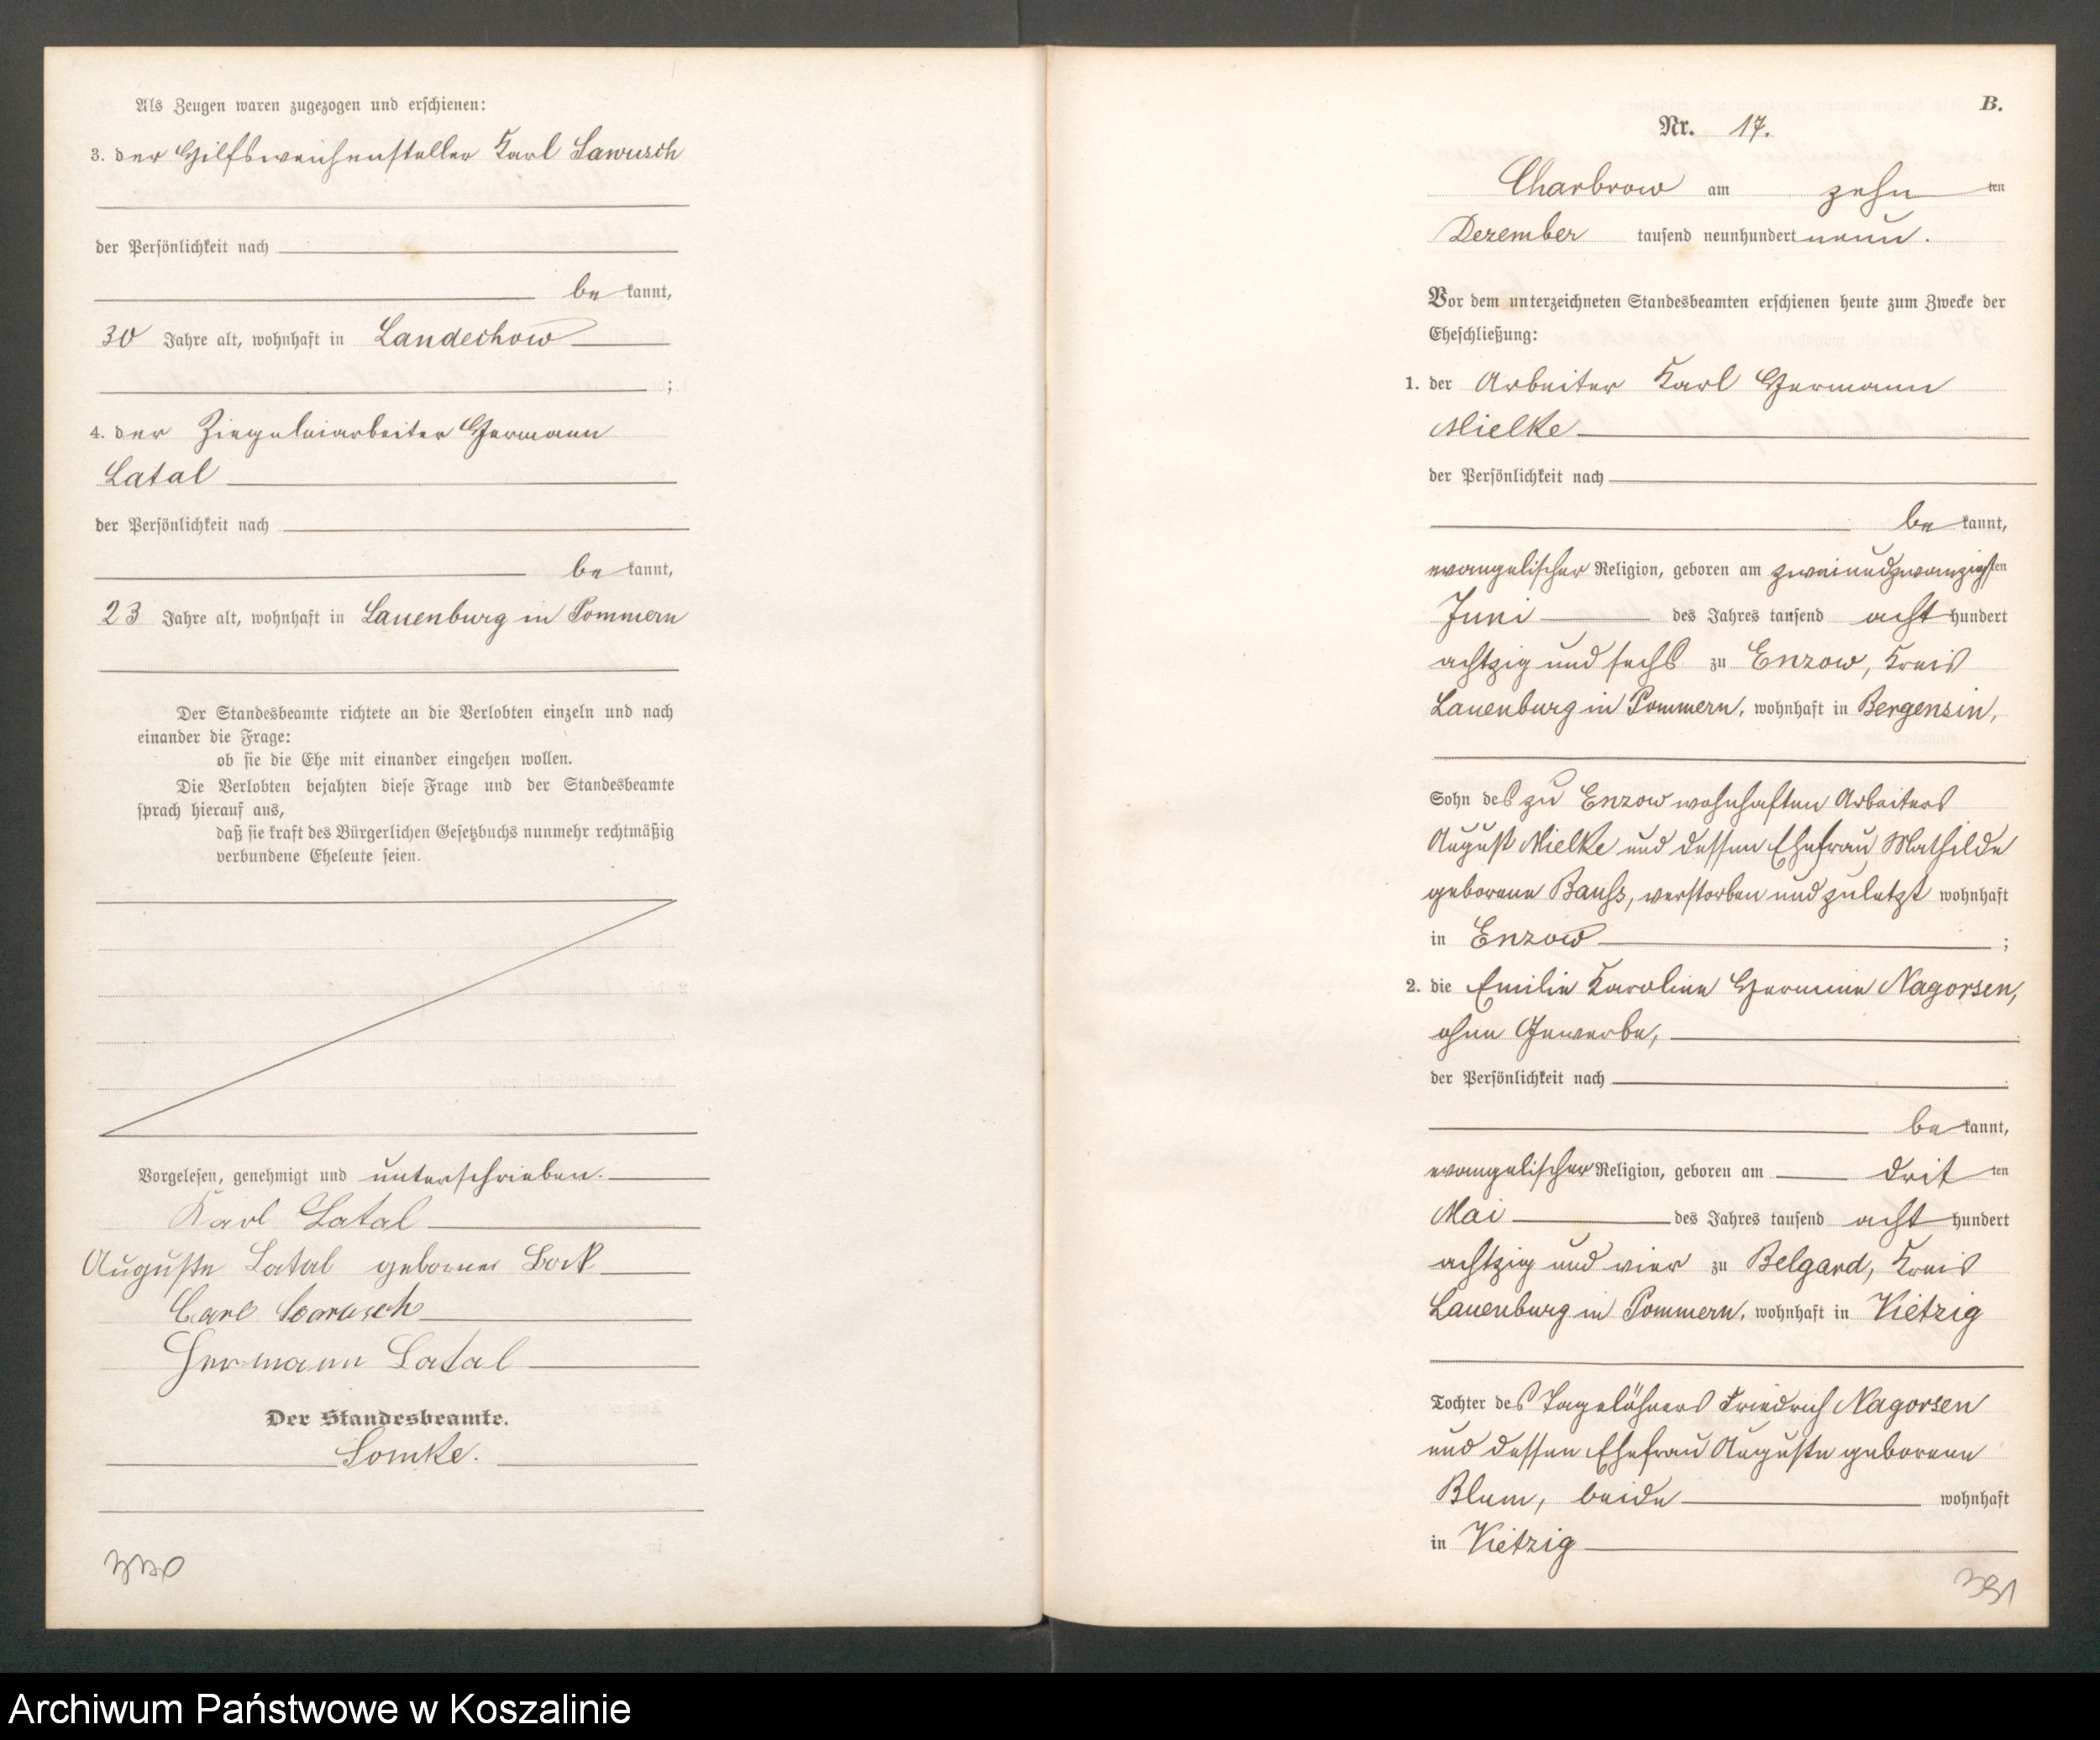 Als Zeugen waren zugezogen und erschienen:
3. der Hilfsweichensteller Karl Sawusch
der Persönlichkeit nach
be kannt,
30 Jahre alt, wohnhaft in Landechow
;
4. der Ziegeleiarbeiter Hermann
Latal
der Persönlichkeit nach
be kannt,
23 Jahre alt, wohnhaft in Lauenburg in Pommern
Der Standesbeamte richtete an die Verlobten einzeln und nach
einander die Frage:
ob sie die Ehe mit einander eingehen wollen.
Die Verlobten bejahten diese Frage und der Standesbeamte
sprach hierauf aus,
daß sie kraft des Bürgerlichen Gesetzbuchs nunmehr rechtmäßig
verbundene Eheleute seien.
Vorgelesen, genehmigt und unterschrieben.
Karl Latal
Auguste Latal geborene Bock
Carl
Hermann Latal
Der Standesbeamte.
Lomke.
B.
Nr. 17.
Charbrow am zehn ten
Dezember tausend neunhundert neun.
Vor dem unterzeichneten Standesbeamten erschienen heute zum Zwecke der
Eheschließung:
1. der Arbeiter Karl Hermann
Mielke
der Persönlichkeit nach
be kannt,
evangelischer Religion, geboren am zweiundzwanzigsten
Juni des Jahres tausend acht hundert
achtzig und sechs zu Enzow, Kreis
Lauenburg in Pommern, wohnhaft in Bergensin,
Sohn des zu Enzow wohnhaften Arbeiters
August Mielke und dessen Ehefrau Mathilde
geborene Banß, verstorben und zuletzt wohnhaft
in Enzow ;
2. die Emilie Karoline Hermine Nagorsen,
ohne Gewerbe,
der Persönlichkeit nach
be kannt,
evangelischer Religion, geboren am drit ten
Mai des Jahres tausend acht hundert
achtzig und vier zu Belgard, Kreis
Lauenburg in Pommern, wohnhaft in Vietzig
Tochter des Tagelöhners Friedrich Nagorsen
und dessen Ehefrau Auguste geborene
Blum, beide wohnhaft
in Vietzig
331
Archiwum Państwowe w Koszalinie